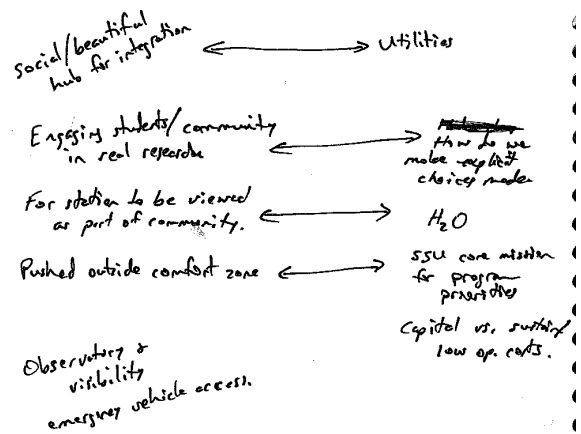 Social/beautiful
hub for integration
Utilities
Engaging students/community
in real research
How do we
make explicit
choices made
For station to be viewed
as part of community.
H2O
Pushed outside comfort zone
SSU core mission
for program
priorities
Capital vs. sustain
low op. costs.
Observatory &
visibility
emergency vehicle access.